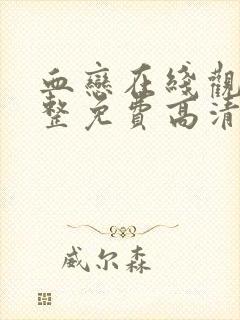 血戀在綫觀
整免費高清
威尔森